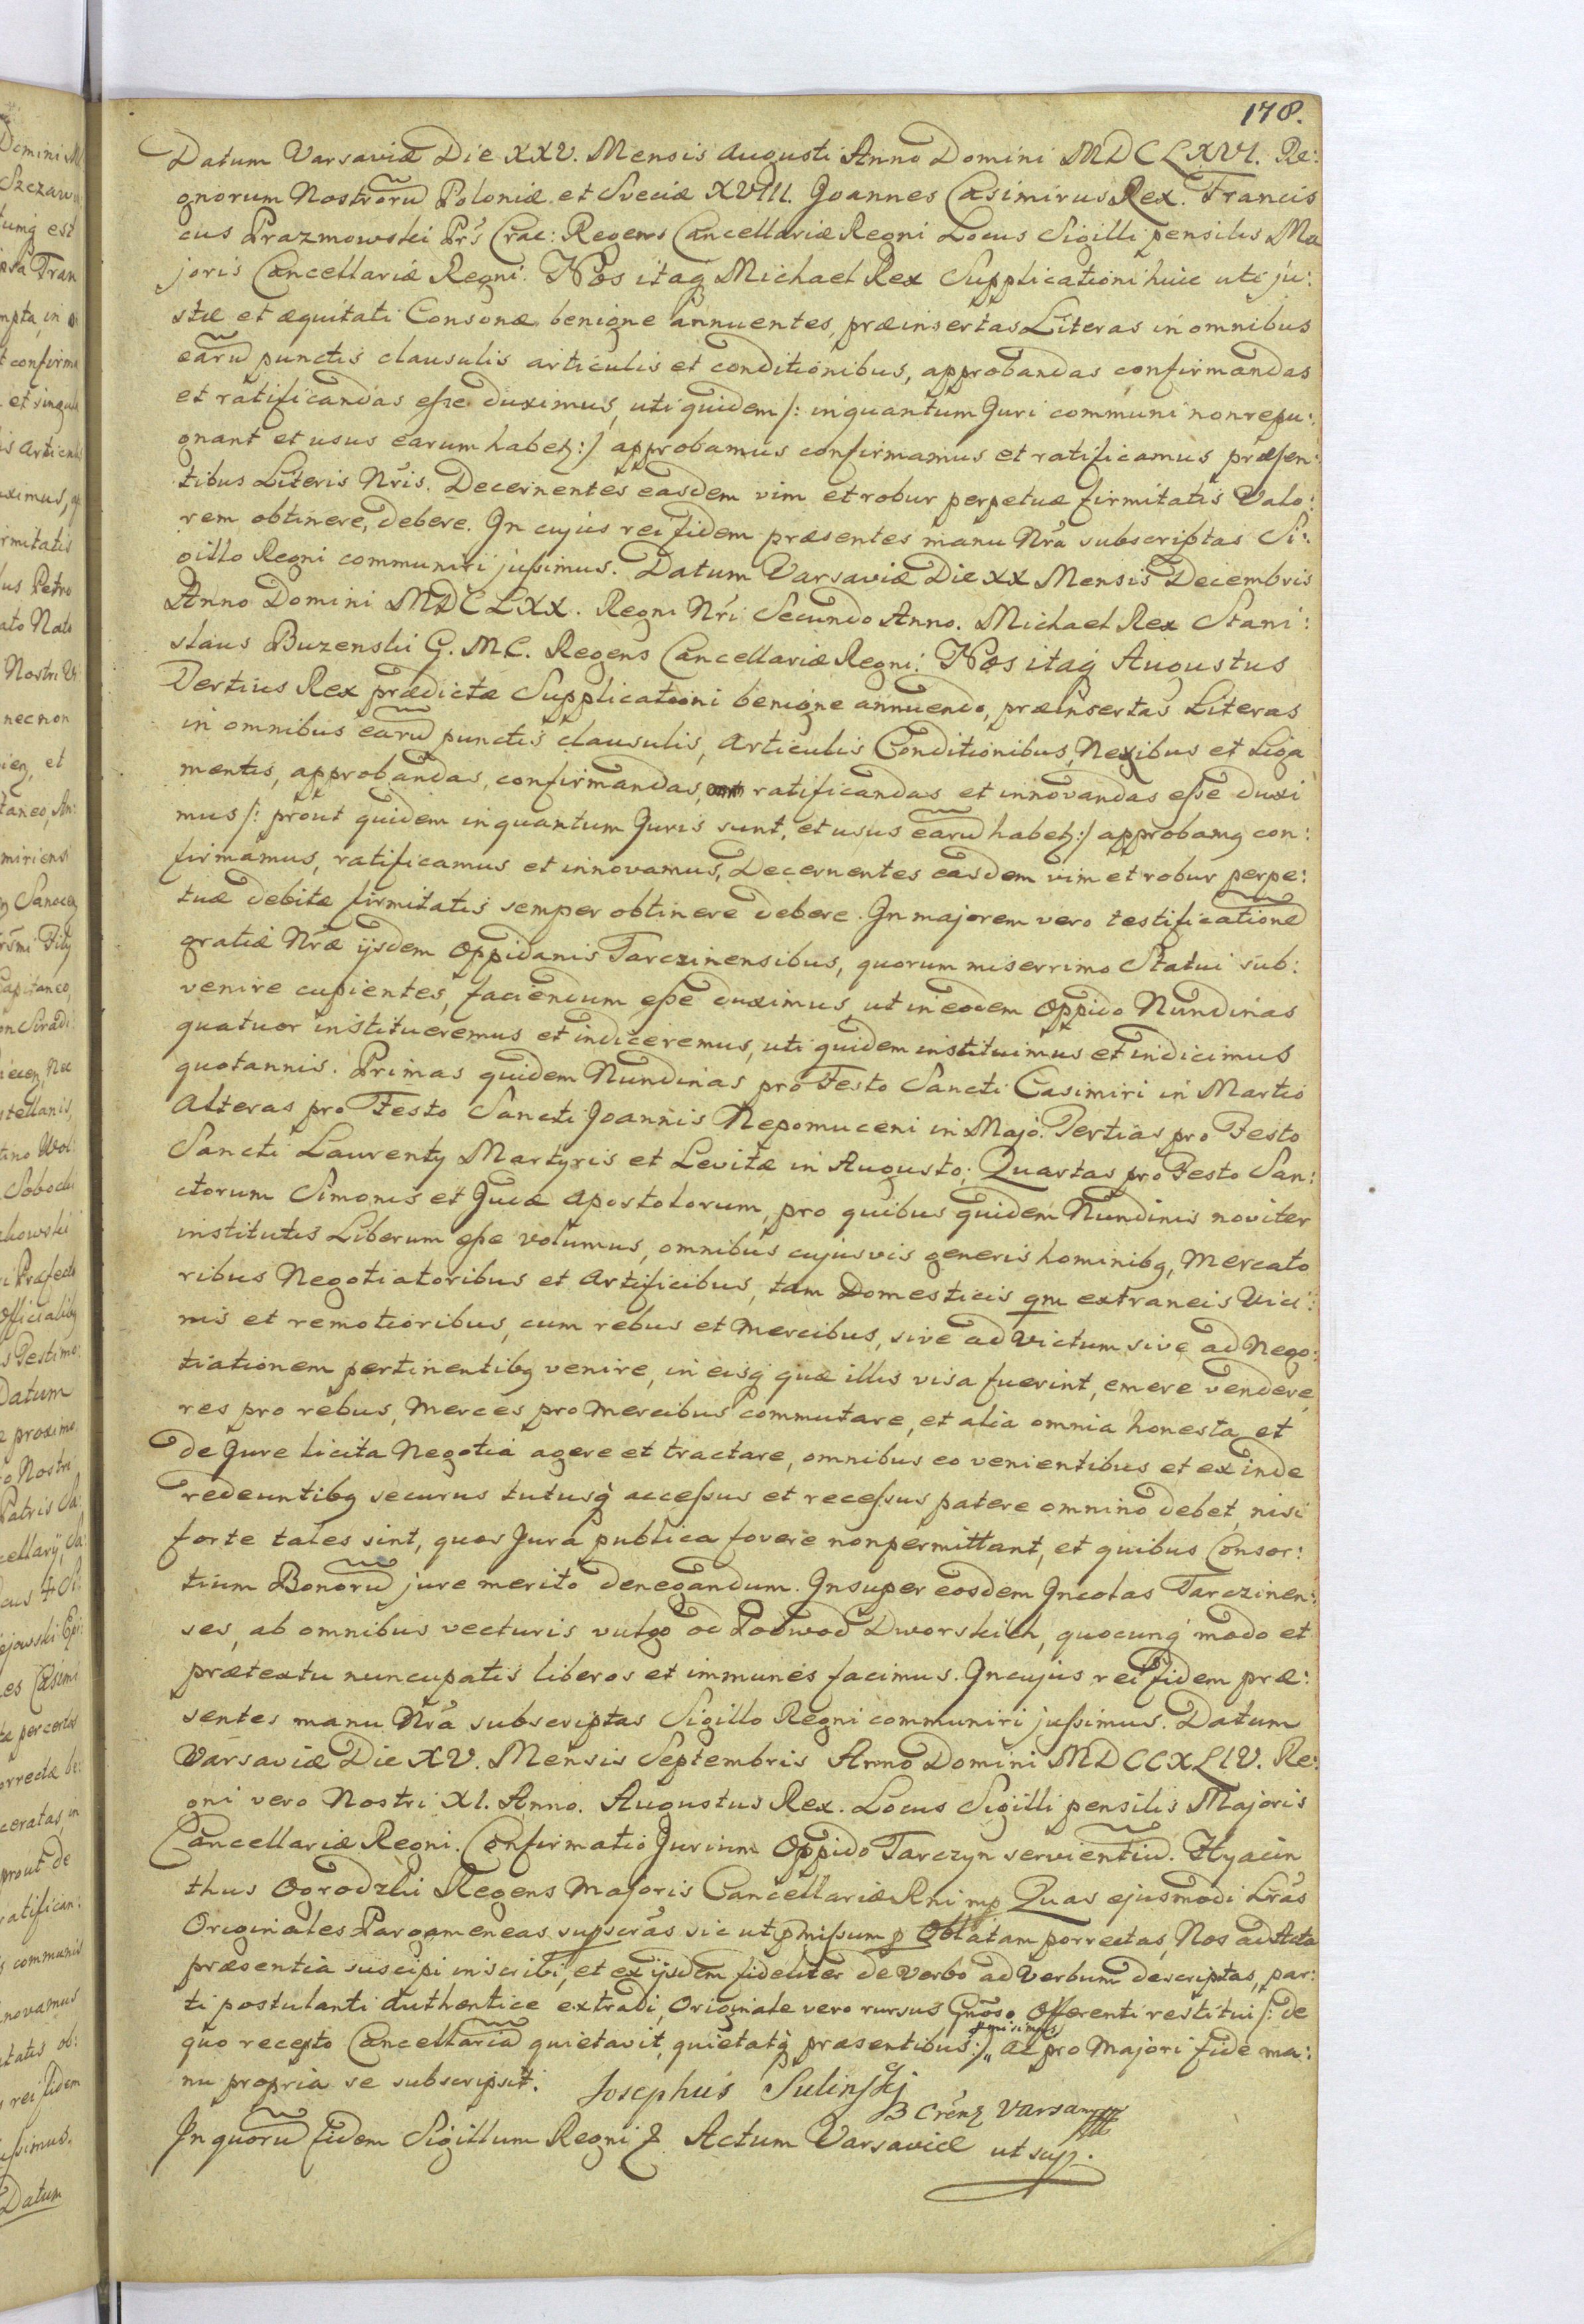 178.
Datum Varsaviæ Die XXV. Mensis Augusti Anno Domini MDCLXVI. Re:
gnorum Nostrorũ Poloniæ et Sveciæ XVIII. Joannes Casimirus Rex. Francis
cus Prazmowski Prs Crac: Regens Cancellariæ Regni Locus Sigilli pensilis Ma
joris Cancellariæ Regni. Nos itaq Michael Rex Supplicationi huic uti ju:
stæ et æquitati Consonæ benigne annuentes, præinsertas Literas in omnibus
earũ punctis clausulis articulis et conditionibus, approbandas confirmandas
et ratificandas eſse duximus, uti quidem /: inquantum Juri communi non repu:
gnant et usus earum habetz :/ approbamus confirmamus et ratificamus præsen:
tibus Literis Nr̃is. Decernentes easdem vim et robur perpetuæ firmitatis Valo:
rem obtinere, debere. In cujus rei fidem præsentes manu Nr̃a subscriptas Si:
gillo Regni communiri juſsimus. Datum Varsaviæ Die XX Mensis Decembris
Anno Domini MDCLXX. Regni Nr̃i Secundo Anno. Michael Rex Stani:
slaus Buzenski G. M C. Regens Cancellariæ Regni. Nos itaq Augustus
Tertius Rex prædictæ Supplicationi benigne annuendo, præinsertas Literas
in omnibus earũ punctis clausulis, Articulis Conditionibus, Nexibus et Liga
mentis, approbandas, confirmandas, ratificandas et innovandas eſse duxi
mus /: prout quidem inquantum Juris sunt, et usus earũ habetz :/ approbamq con:
firmamus, ratificamus et innovamus, Decernentes easdem vim et robur perpe:
tuæ debitæ firmitatis semper obtinere debere. In majorem vero testificationẽ
gratiæ Nr̃æ ijsdem Oppidanis Tarczinensibus, quorum miserrimo Statui sub:
venire cupientes, faciendum eſse duximus, ut in eodem Oppido Nundinas
quatuor institueremus et indiceremus, uti quidem instituimus et indicimus
quotannis. Primas quidem Nundinas pro Festo Sancti Casimiri in Martio
Alteras pro Festo Sancti Joannis Nepomuceni in Majo. Tertias pro Festo
Sancti Laurenty Martyris et Levitæ in Augusto; Quartas pro Festo San:
ctorum Simonis et Judæ Apostolorum, pro quibus quidem Nundinis noviter
institutis Liberum eſse volumus, omnibus cujusvis generis hominibq, Mercato
ribus Negotiatoribus et Artificibus, tam Domesticis qm extraneis Vici:
nis et remotioribus, cum rebus et Mercibus, sive ad Victum sive ad Nego:
tiationem pertinentibq venire, in eisq quæ illis visa fuerint, emere vendere,
res pro rebus, Merces pro Mercibus commutare, et alia omnia honesta et
de Jure licita Negotia agere et tractare, omnibus eo venientibus et ex inde
redeuntibq securus tutusq acceſsus et receſsus patere omnino debet, nisi
forte tales sint, quos Jura publica fovere non permittant, et quibus Consor:
tium Bonorũ jure merito denegandum. Insuper eosdem Incolas Tarczinen:
ses, ab omnibus vecturis vulgo od Podwod Dworskich, quocunq modo et
prætextu nuncupatis liberos et immunes facimus. In cujus rei fidem præ:
sentes manu Nr̃a subscriptas Sigillo Regni communiri juſsimus. Datum
Varsaviæ Die XV. Mensis Septembris Anno Domini MDCCXLIV. Re:
gni vero Nostri XI. Anno. Augustus Rex. Locus Sigilli pensilis Majoris
Cancellariæ Regni. Confirmatio Jurium Oppido Tarczyn servientiũ. Hyacin
thus Ogrodzki Regens Majoris Cancellariæ Rni mp Quas ejusmodi Lr̃as
Originales Pargameneas supscr̃as sic ut pmiſsum p Oblatam porrectas, Nos ad Acta
præsentia suscipi inscribi, et ex ijsdem fideliter de Verbo ad Verbum descriptas, par:
ti postulanti authentice extradi, Originale vero rursus Gnoso Offerenti restitui /: de
quo recepto Cancellariã quietavit, quietatq præsentibus :/ pmisimus, Ac pro Majori fide ma:
nu propria se subscripsit. Josephus Sulinſki
B Cr̃enz Varsa mpp
In quorũ fidem Sigillum Regni &. Actum Varsaviæ ut sup.